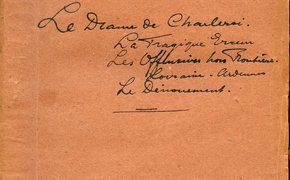 Le Drame de Charleroi.
La Tragique Erreur
Les Offensives hors Frontière.
Lorraine - Ardennes
Le Dénouement.